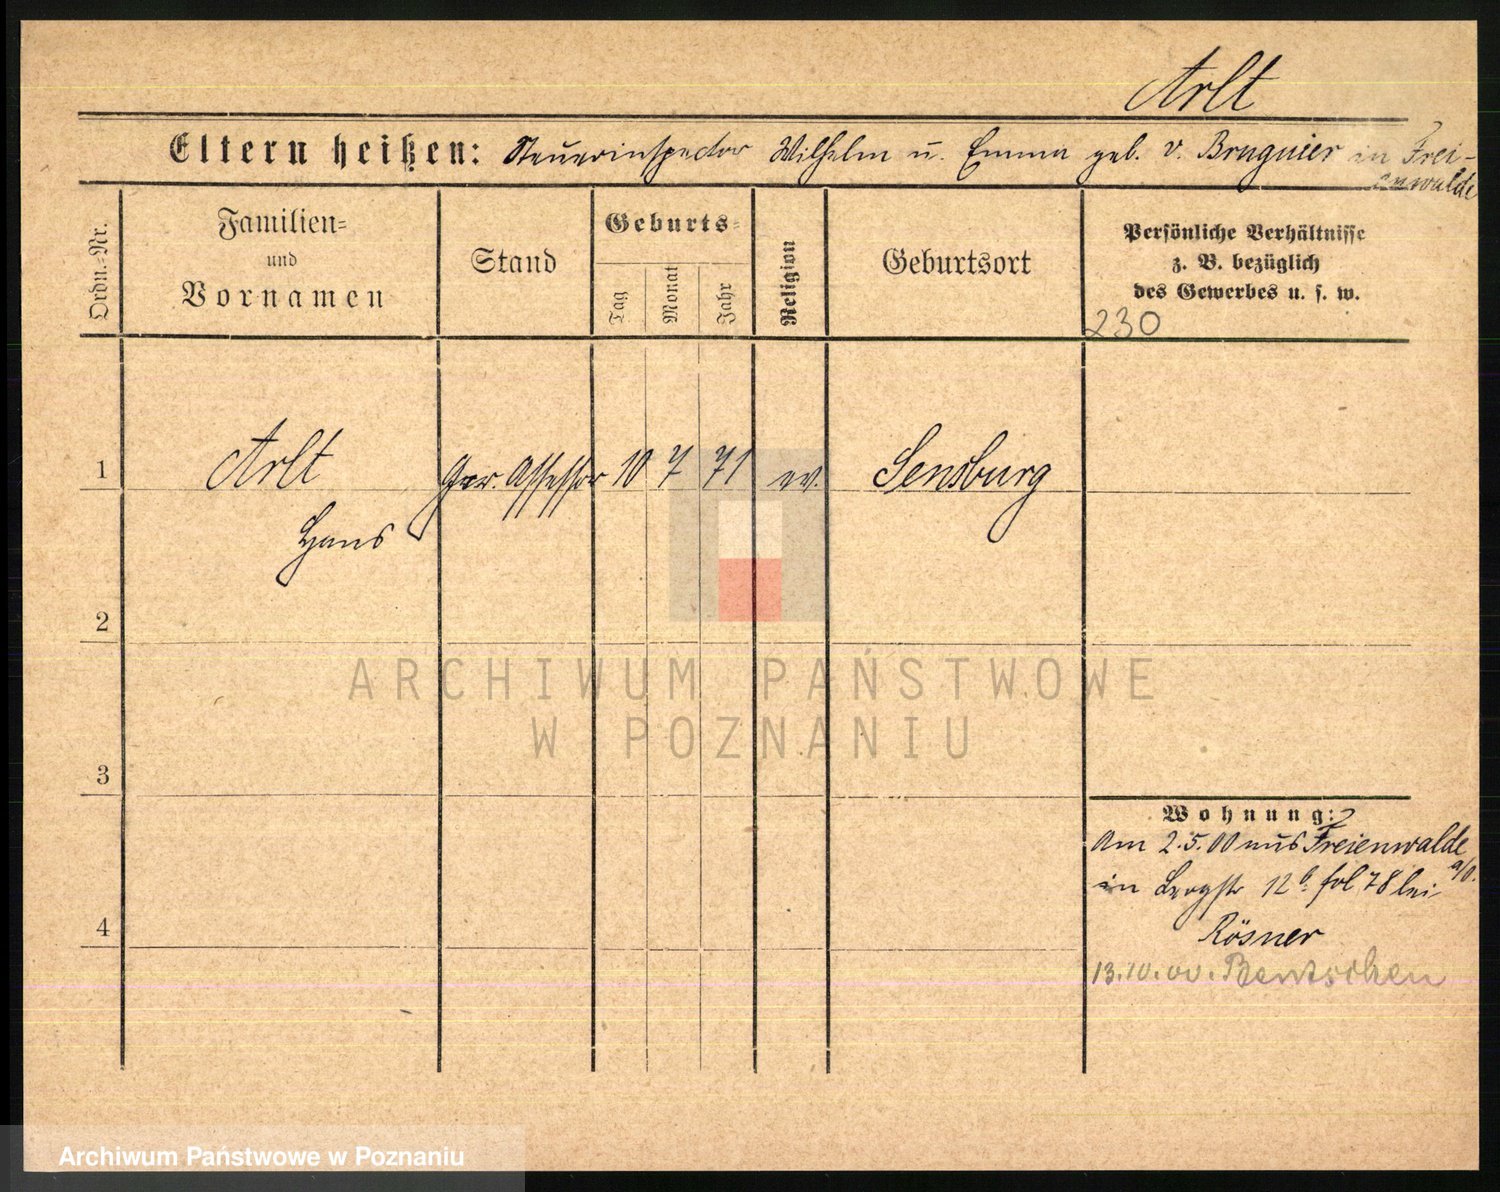 Arlt
Eltern heißen: Steuerinspector Wilhelm u. Emma geb. v. Bruguier in Frei-
enwalde
Ordn.-Nr.
Familien-
und
Vornamen
Stand
Geburts-
Tag
Monat
Jahr
Religion
Geburtsort
Persönliche Verhältnisse
z. B. bezüglich
des Gewerbes u. s. w.
230
1
Arlt
Ger. Assessor
10
7
71
ev.
Sensburg
Hans
2
ARCHIWUM PAŃSTWOWE
W POZNANIU
3
Wohnung:
Am 2.5.00 aus Freienwalde
a/O.
in Bergstr 12b. fol 78 bei
Rösner
4
13.10.00. Bentschen
Archiwum Państwowe w Poznaniu